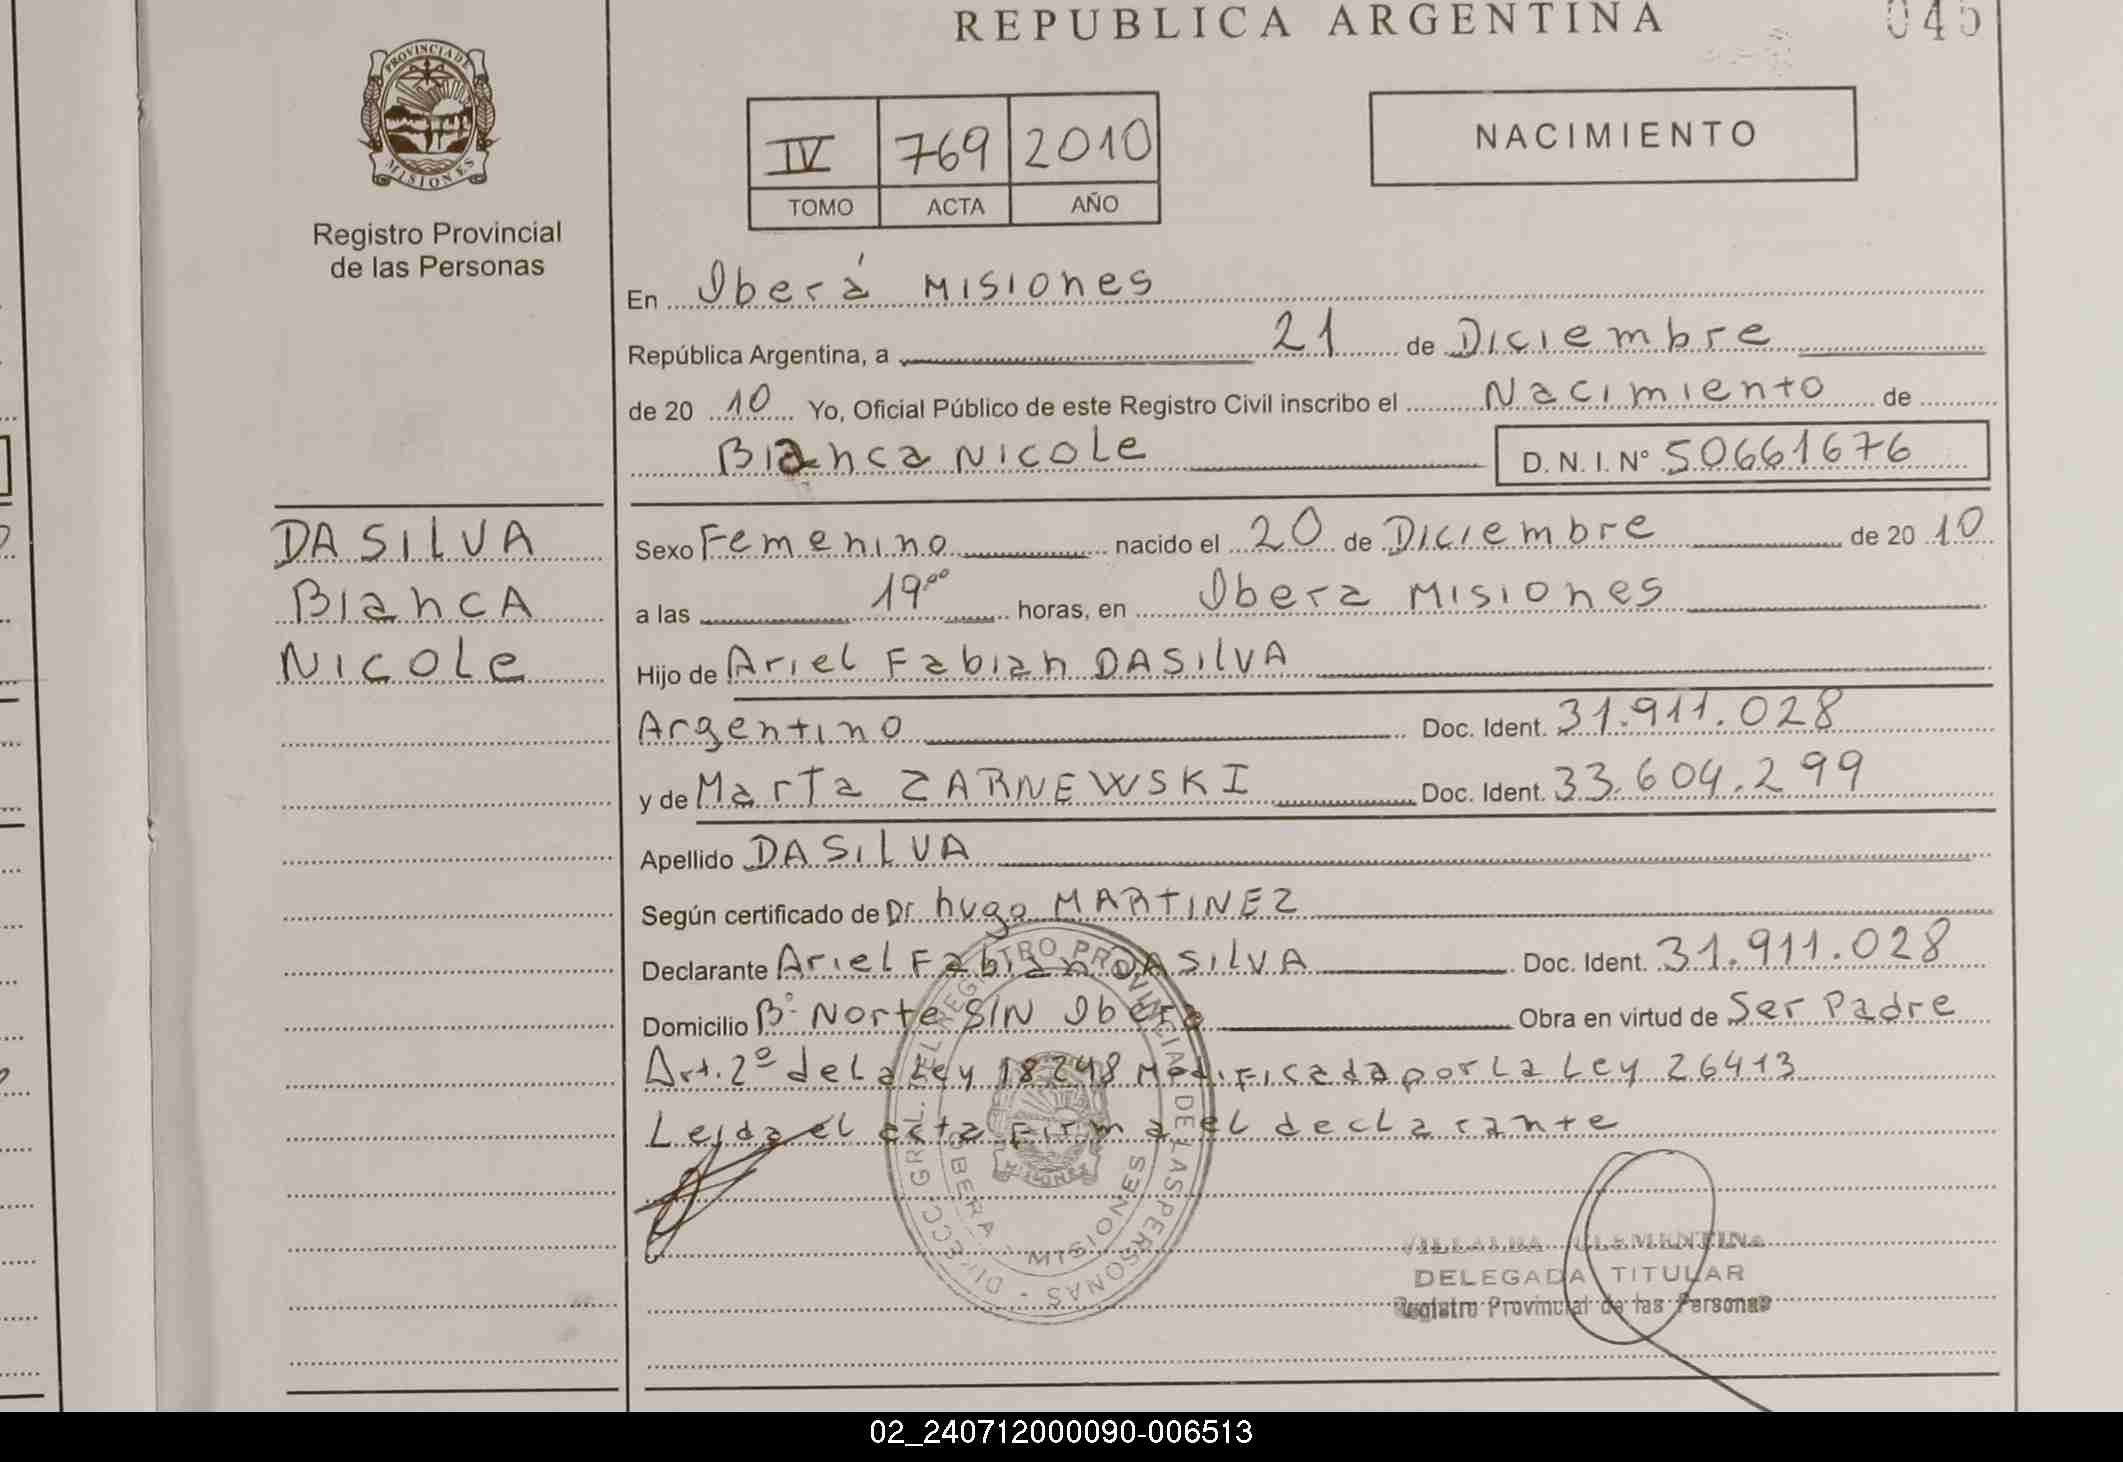 REPUBLICA ARGENTINA
045
PROVINCIA DE
MISIONES
Registro Provincial
de las Personas
IV 769 2010
TOMO ACTA AÑO
NACIMIENTO
En Oberá Misiones
República Argentina, a 21 de Diciembre
de 20 10 Yo, Oficial Público de este Registro Civil inscribo el Nacimiento de
Bianca Nicole D. N. I. Nº 50661676
DASILVA
Bianca
Nicole
Sexo Femenino nacido el 20 de Diciembre de 20 10
a las 19.00 horas, en Obera Misiones
Hijo de Ariel Fabian DASILVA
Argentino Doc. Ident. 31.911.028
y de Marta ZARNEWSKI Doc. Ident. 33.604.299
Apellido DASILVA
Según certificado de Dr. hugo MARTINEZ
Declarante Ariel Fabian DASILVA Doc. Ident. 31.911.028
Domicilio Bº Norte S/N Obera Obra en virtud de Ser Padre
Art. 2º de la Ley 18248 Modificada por La Ley 26413
Leida el acta Firma el declarante
DIRECC. GRAL. DEL REGISTRO PROVINCIAL DE LAS PERSONAS
OBERA MISIONES
VILLALBA CLEMENTINA
DELEGADA TITULAR
Registro Provincial de las Personas
02_240712000090-006513